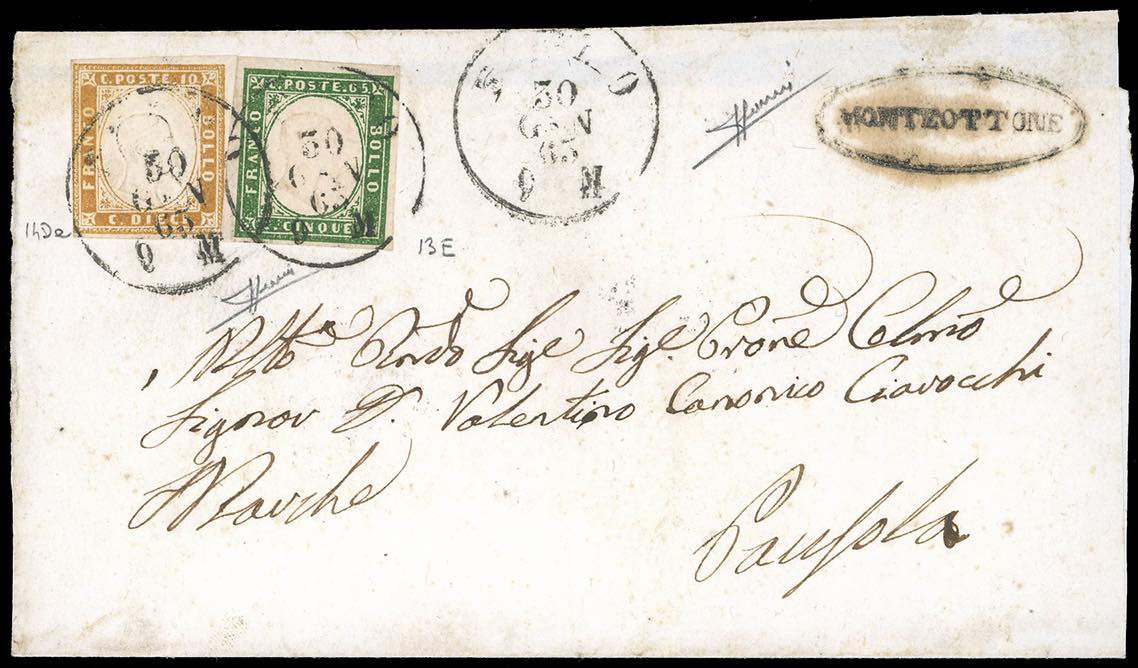 C. POSTE. 10
FRANCO
BOLLO
C. DIECI
C. POSTE. 65
FRANCO
BOLLO
C. CINQUE
30
GEN
63
9 M
30
GEN
63
9 M
30
GEN
63
9 M
MONTEOTTONE
14Da
13E
Sigr Sigr Prone Colmo
Signor D. Valentino Canonico Ciavocchi
Marche
Pausola